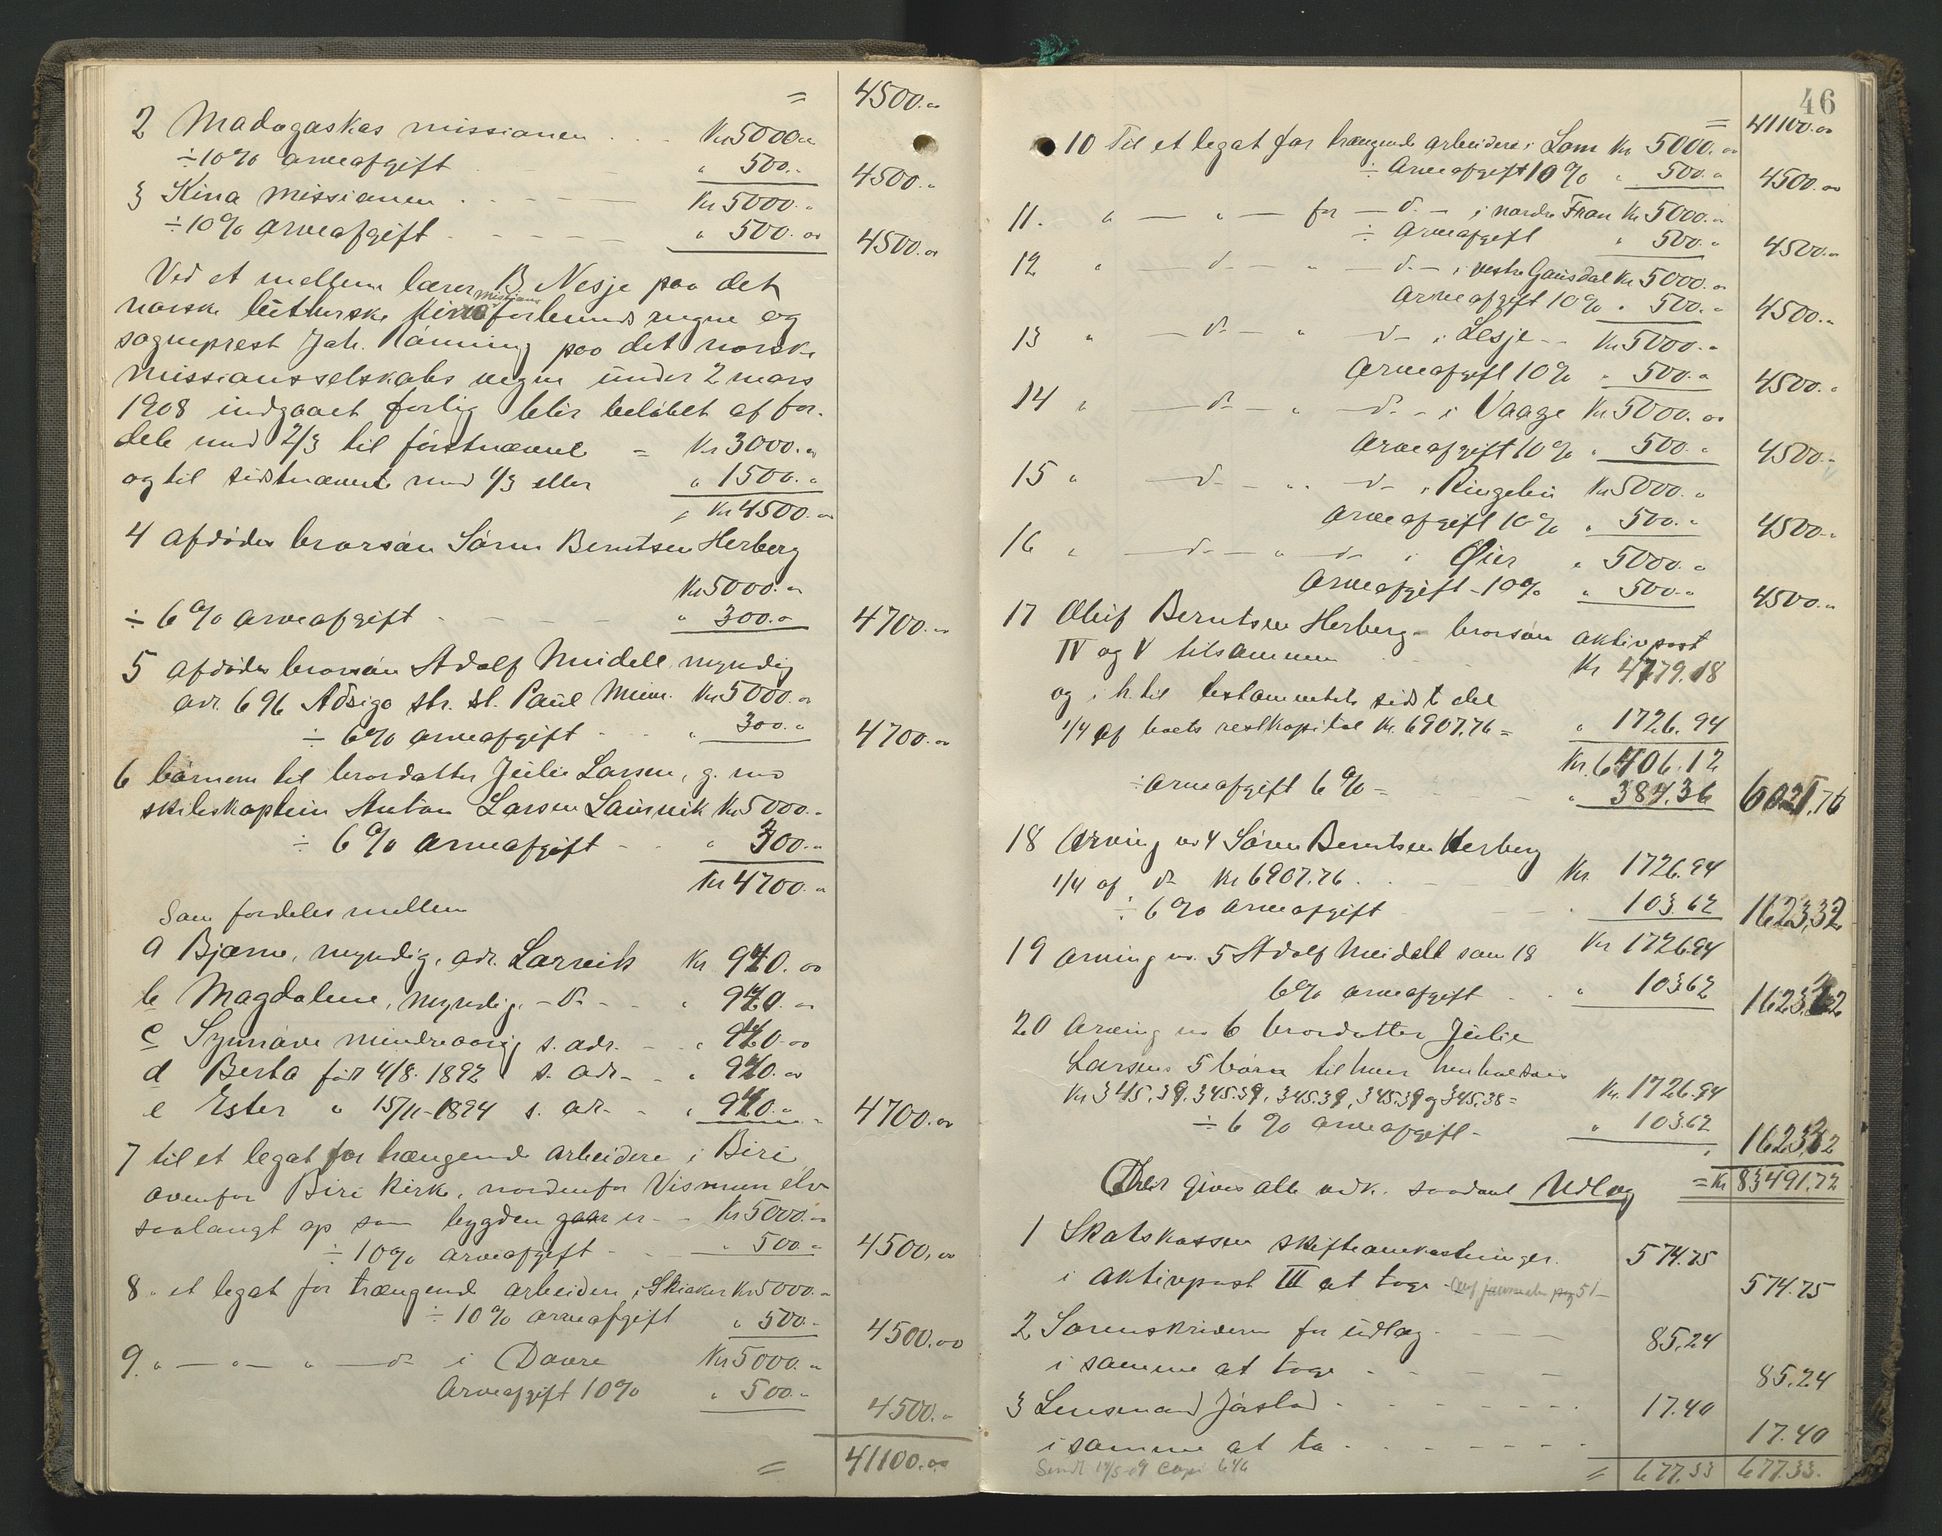 = 4500.00
2 Madagaskas missionen . . Kr 5000.00
÷ 10% arveafgift " 500.- 4500.-
3 Kina missionen . - - - Kr 5000.-
÷ 10% arveafgift - - - " 500.00 4500.00
Ved et mellem lærer B Nesje paa det
norske lutherske missions forbunds vegne og
sogneprest Joh. Lönning paa det norske
missionsselskabs vegne under 2 mars
1908 indgaaet forlig blir beløbet at for-
dele med 2/3 til førstnævnte = Kr 3000.00
og til sidstnævnte med 1/3 eller " 1500.00
Kr 4500.00
4 afdødes brorsøn Søren Berntsen Herberg
Kr 5000.00
÷ 6% arveafgift - - - " 300.00 4700.00
5 afdødes brorsøn Adolf Meidell, myndig
adr. 696 Adsigo str. St. Paul Minn. Kr 5000.00
÷ 6% arveafgift - - " 300.- 4700.00
6 børnene til brordatter Julie Larsen, g. med
skibskaptein Anton Larsen Laurvik Kr 5000.-
÷ 6% arveafgift - - " 300.-
Kr 4700.-
Som fordeles mellem
a Bjarne, myndig, adr. Larvik Kr. 940.00
b Magdalene, myndig, - d - - " 940.00
c Synnøve mindreaarig s. adr. - " 940.00
d Berta født 4/8. 1892 s. adr. - " 940.00
e Ester " 15/11-1894 s. adr. - " 940.- 4700.00
7 til et legat for trængende arbeidere i Biri
ovenfor Biri kirke, nordenfor Vismun elv
saalangt op som bygden gaar er - - Kr 5000.00
÷ 10% arveafgift - - - " 500.- 4500.00
8 " et legat for trængende arbeidere i Skiaker Kr 5000.-
÷ 10% arveafgift " 500.- 4500.00
9. " — " — " — d - i Dovre Kr 5000.-
Arveafgift 10% " 500.- 4500.-
= 41100.00
46
= 41100.00
10 Til et legat for trængende arbeidere i Lom Kr 5000.00
÷ Arveafgift 10% " 500.- 4500.00
11. " — " — for — d. - i nordre Fron Kr 5000.-
÷ Arveafgift " 500.- 4500.-
12 " — d - " — d. - i vestre Gausdal Kr 5000.-
Arveafgift 10% " 500.- 4500.-
13 " — d - " d - i Lesje - - Kr 5000.-
Arveafgift 10% " 500.- 4500.-
14 " — d - " — d. - i Vaage Kr 5000.00
Arveafgift 10% " 500.- 4500.-
15 " — d - " d - i Ringebu Kr 5000.-
Arveafgift 10% " 500.- 4500.-
16 " — d - " — d - i Øier " 5000.-
Arveafgift - 10% " 500.- 4500.-
17 Oluf Berntsen Herberg - brorsøn aktivpost
IV og V tilsammen - - Kr 4779.18
og i h. til testamentets sidste del
1/4 af boets restkapital Kr. 6907,76 = " 1726.94
Kr. 6406.12
÷ Arveafgift 6% = - - - " 384,36 6021,76
18 Arving no 4 Søren Berntsen Herberg
1/4 af d - Kr 6907.76. - - - Kr. 1726.94
÷ 6% arveafgift - - - 103.62 1623,32
19 Arving no. 5 Adolf Meidell som 18 Kr 1726.94
6% arveafgift - - " 103.62 1623,32
20 Arving no 6 brordatter Julie
Larsens 5 børn tilhver henholdsvis
Kr 345.39, 345.39, 345.39, 345.39 og 345.38 = Kr. 1726.94
÷ 6% arveafgift - " 103.62 1623,32
= Kr 83491.72
Der gives alle vedk. saadant Udlæg
1 Skatskassen skifteomkostninger. 574.75
i aktivpost III at tage - 574.75
2 Sorenskriveren for udlæg - - - 85.24
i samme at tage - - - - 85.24
3 Lensmand Jørstad - - - - - 17.40
i samme at ta - - - - - - 17.40
Sendt 14/5 09 Copi 646
= 677.33 677.33.